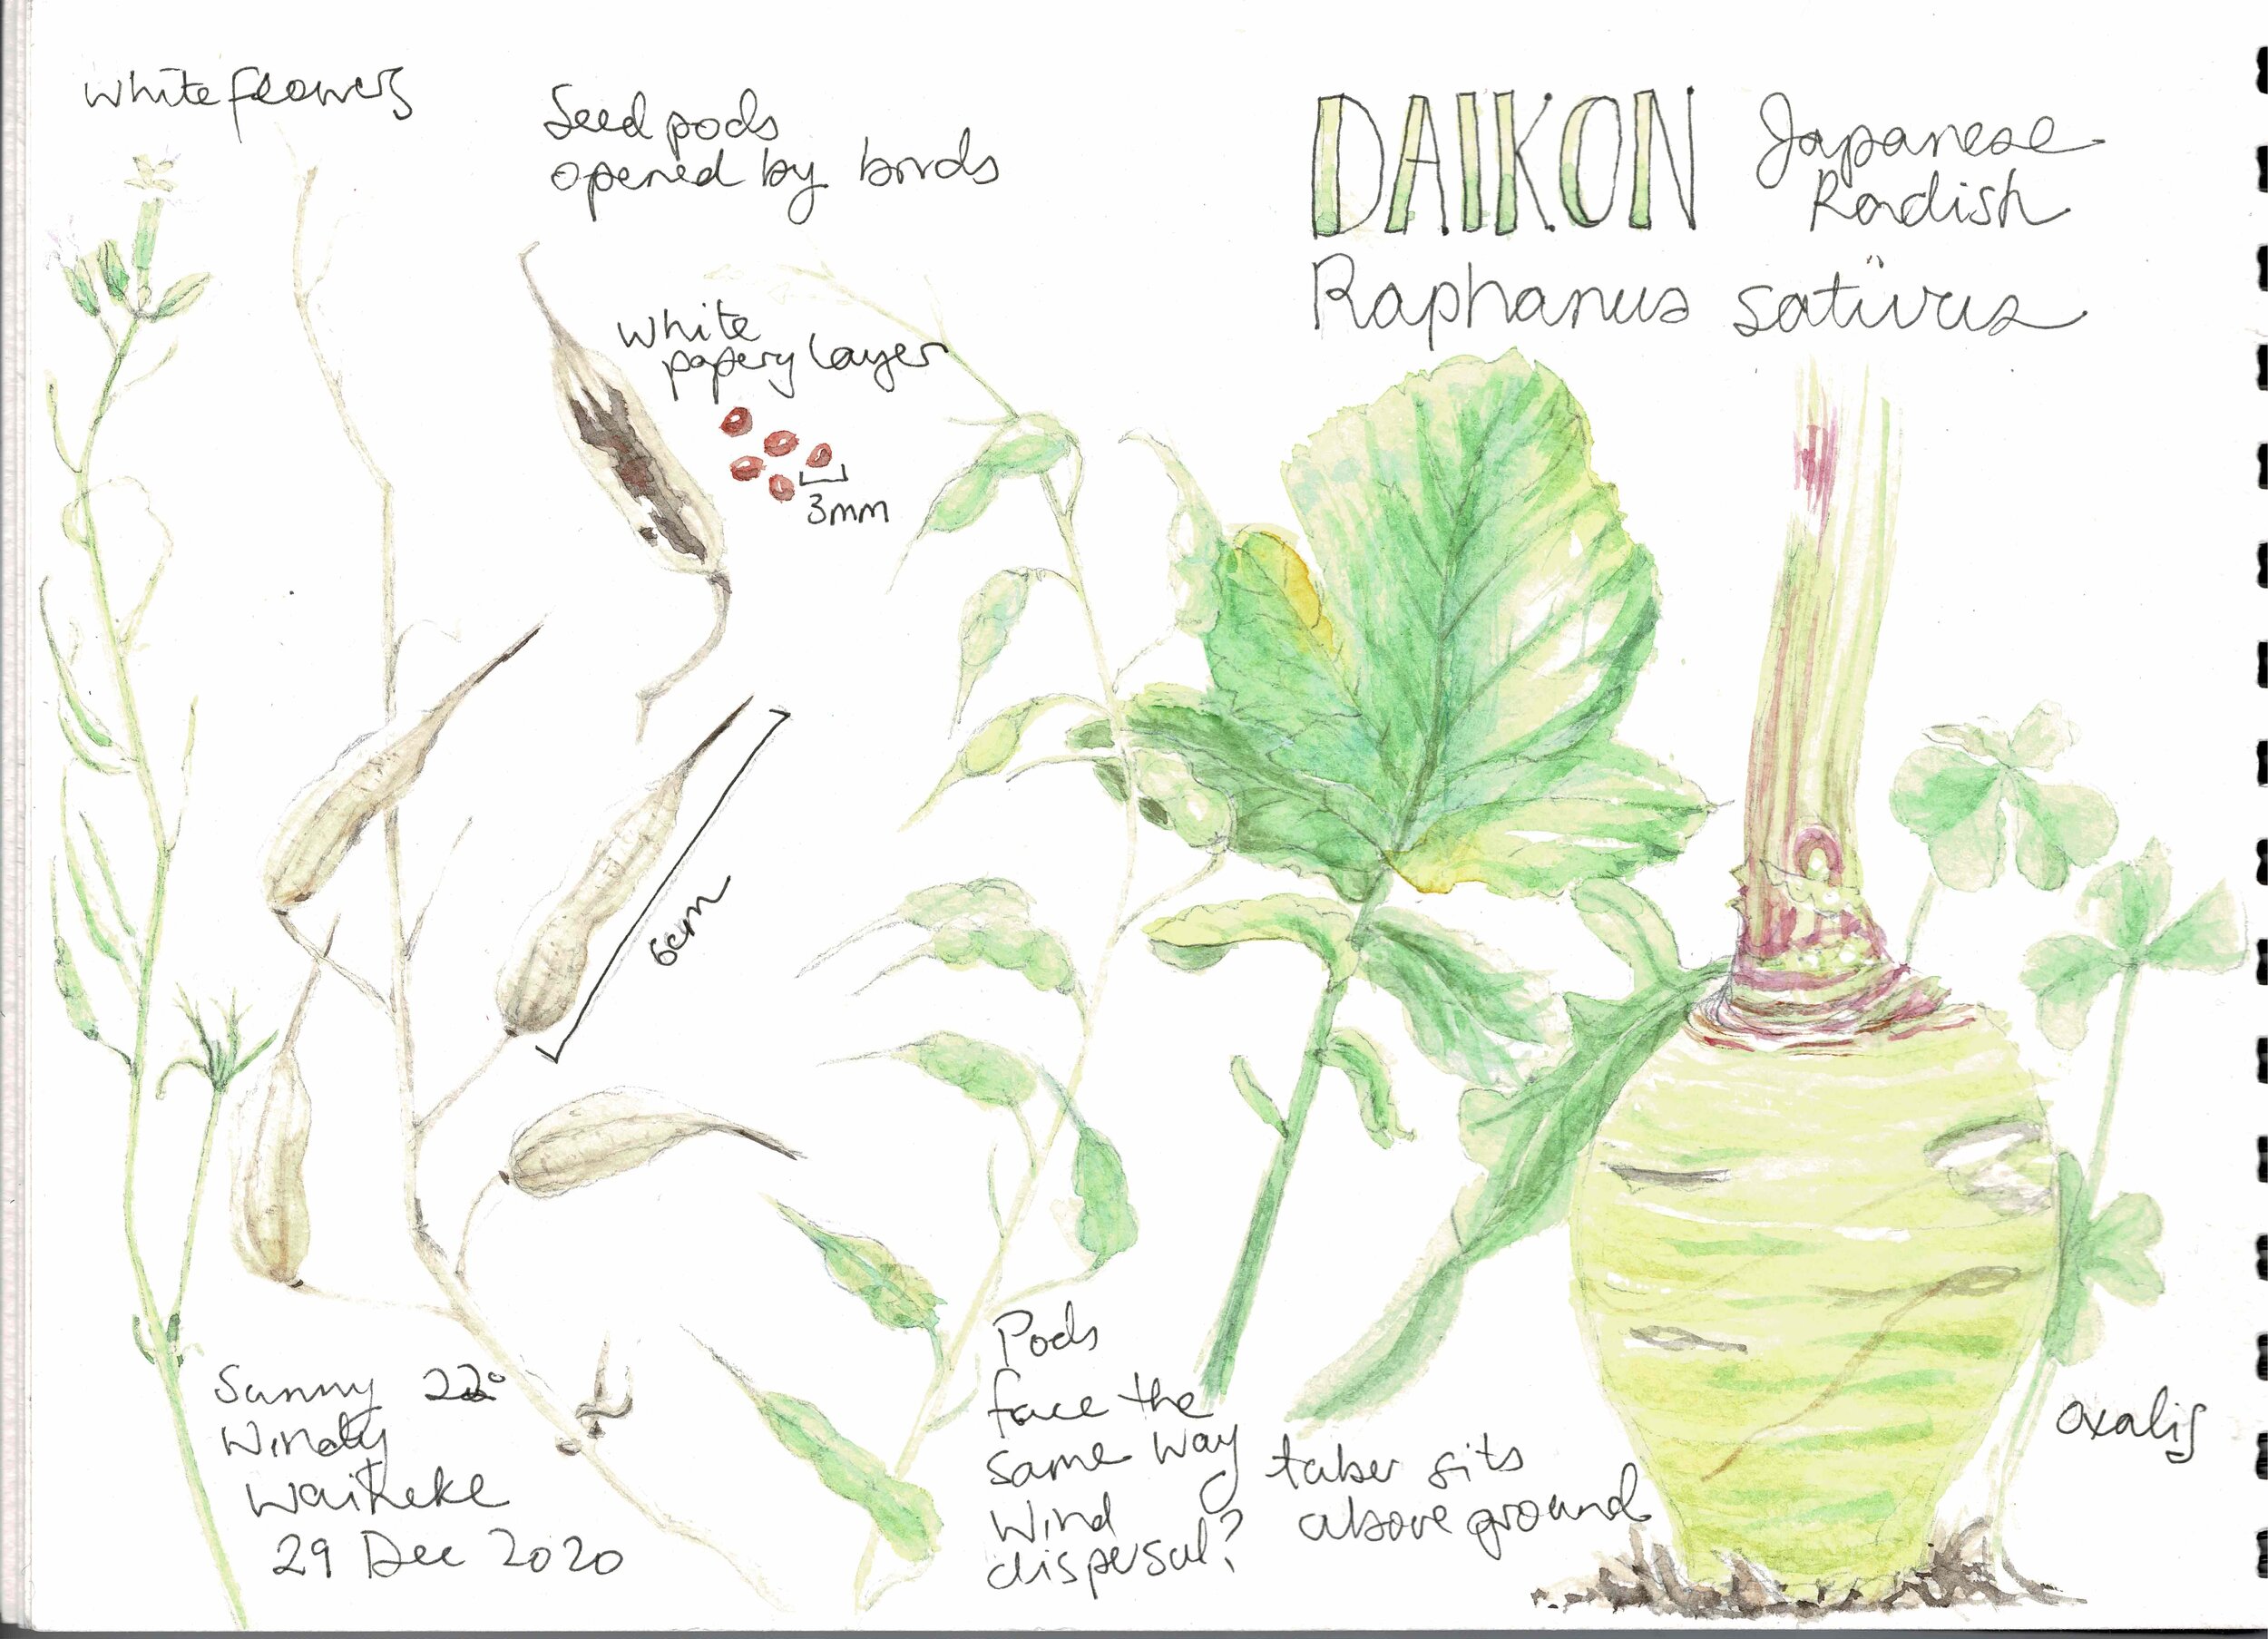 White flowers
Seed pods
opened by birds
White
papery layer
3mm
6cm
DAIKON
Japanese
Radish
Raphanus sativus
Sunny 22°
Windy
Waiheke
29 Dec 2020
Pods
face the
same way
Wind
dispersal?
tuber sits
above ground
oxalis